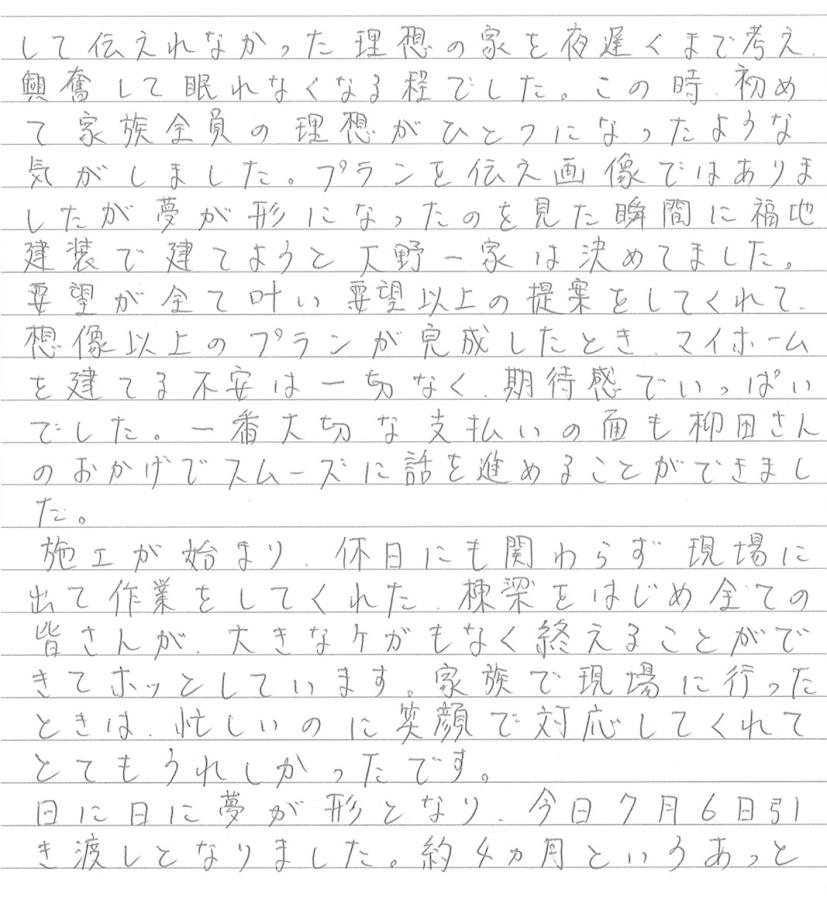 して伝えれなかった理想の家を夜遅くまで考え、
興奮して眠れなくなる程でした。この時、初め
て家族全員の理想がひとつになったような
気がしました。プランを伝え画像ではありま
したが夢が形になったのを見た瞬間に福地
建装で建てようと天野一家は決めてました。
要望が全て叶い要望以上の提案をしてくれて、
想像以上のプランが完成したとき、マイホーム
を建てる不安は一切なく、期待感でいっぱい
でした。一番大切な支払いの面も柳田さん
のおかげでスムーズに話を進めることができまし
た。
施工が始まり、休日にも関わらず現場に
出て作業をしてくれた、棟梁をはじめ全ての
皆さんが、大きなケガもなく終えることがで
きてホッとしています。家族で現場に行った
ときは、忙しいのに笑顔で対応してくれて
とてもうれしかったです。
日に日に夢が形となり、今日7月6日引
き渡しとなりました。約4ヵ月というあっと